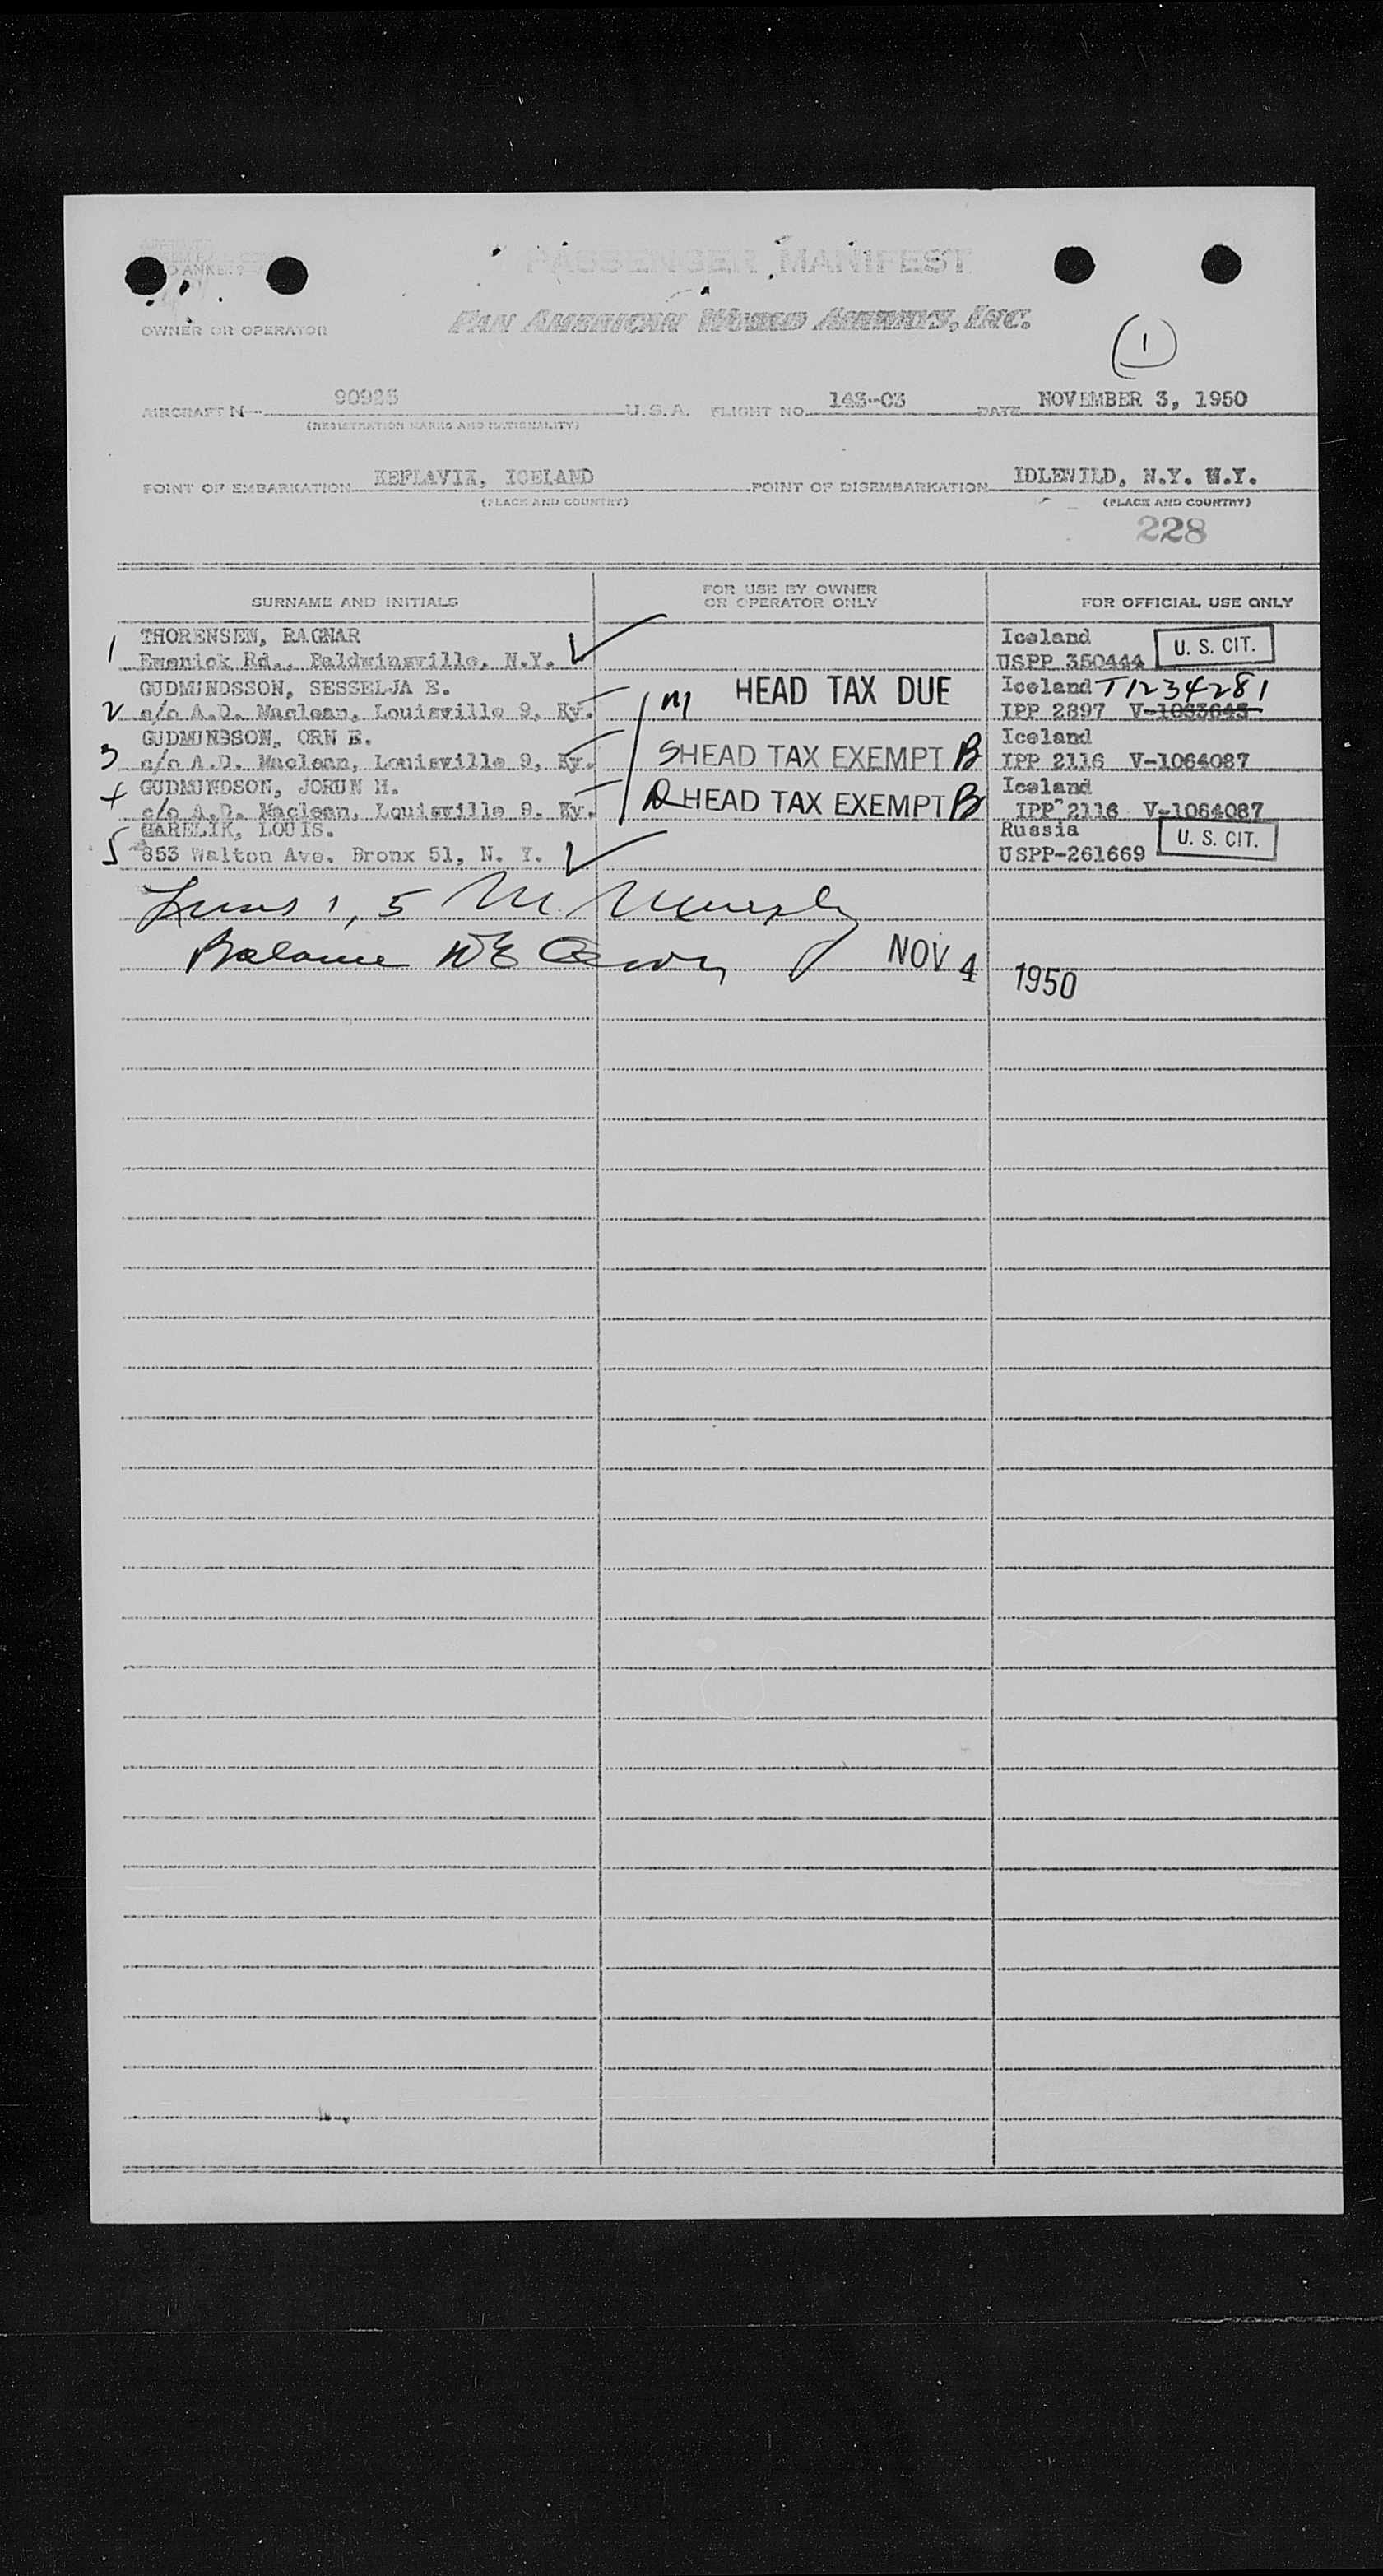 PASSENGER MANIFEST
OWNER OR OPERATOR PAN AMERICAN WORLD AIRWAYS, INC.
(1)
AIRCRAFT N 90925 U.S.A. FLIGHT NO. 143-03 DATE NOVEMBER 3, 1950
(REGISTRATION MARKS AND NATIONALITY)
POINT OF EMBARKATION KEFLAVIK, ICELAND POINT OF DISEMBARKATION IDLEWILD, N.Y. N.Y.
(PLACE AND COUNTRY) (PLACE AND COUNTRY)
228
SURNAME AND INITIALS FOR USE BY OWNER OR OPERATOR ONLY FOR OFFICIAL USE ONLY
1 THORENSEN, RAGNAR Iceland
Rd., Baldwinsville, N.Y. USPP 350444 U. S. CIT.
GUDMUNDSSON, SESSELJA E. M HEAD TAX DUE Iceland T1234281
2 c/o A.D. Maclean, Louisville 9, Ky. IPP 2897 V-1063645
GUDMUNDSON, ORN E. Iceland
3 c/o A.D. Maclean, Louisville 9, Ky. S HEAD TAX EXEMPT B IPP 2116 V-1064087
4 GUDMUNDSON, JORUN H. Iceland
c/o A.D. Maclean, Louisville 9, Ky. D HEAD TAX EXEMPT B IPP 2116 V-1064087
GARELIK, LOUIS. Russia
5 853 Walton Ave. Bronx 51, N. Y. USPP-261669 U. S. CIT.
Lines 1, 5 M Murphy
Balance NOV 4 1950